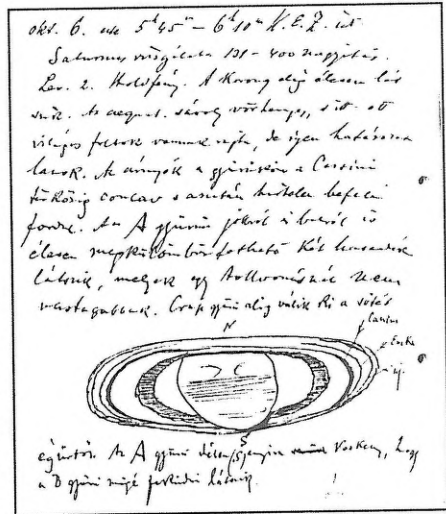 okt. 6. este 5ʰ45ᵐ – 6ʰ10ᵐ K.E.Z. idő
Saturnus vizsgálata 131–400 nagyítás.
Lev. 2. Holdfény. A Korong elég élesen lát
szik. Az aequat. vöröhenyes, itt ott
világos foltok vannak rajta, de igen határozat
lanok. Az árnyék a gyűrűkön a Cassini
közig concav s azután befelé
fordul. Az A gyűrűn jobbról s balról is
élesen megkülömböztethető két
látszik, melyek egy tollvonásnál nem
vastagabbak. Crap gyűrű alig válik ki a sötét
N
Cassini
Encke
új
S
égűrtől. Az A gyűrű déli keskeny, hogy
a B gyűrű mögé látszik.